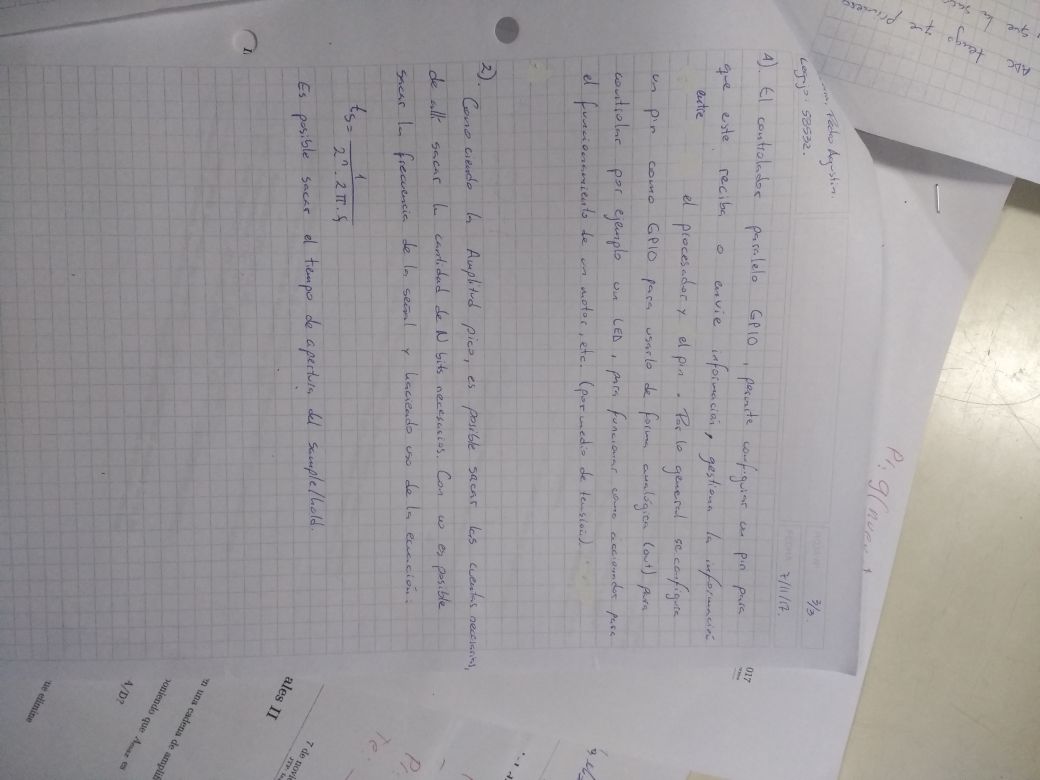 Pedro Agustín.
Legajo: 58532.
3/3.
7/11/17.
1). El controlador paralelo GPIO, permite configurar un pin para
que este reciba o envíe información, gestiona la información
entre el procesador y el pin. Por lo general se configura
un pin como GPIO para usarlo de forma analógica (out) para
controlar por ejemplo un LED, para funcionar como accionador para
el funcionamiento de un motor, etc. (por medio de tensión).
2). Conociendo la Amplitud pico, es posible sacar las cuentas necesarias,
de allí sacar la cantidad de N bits necesarios. Con w es posible
sacar la frecuencia de la señal y haciendo uso de la ecuación:
ts = 1 / 2^n . 2π . f
Es posible sacar el tiempo de apertura del sample/hold.
ADC
tengo que primero
que la
017
ales II
7 de novi
n una cadena de amplifi
oniendo que Amax es
A/D?
ue elimine